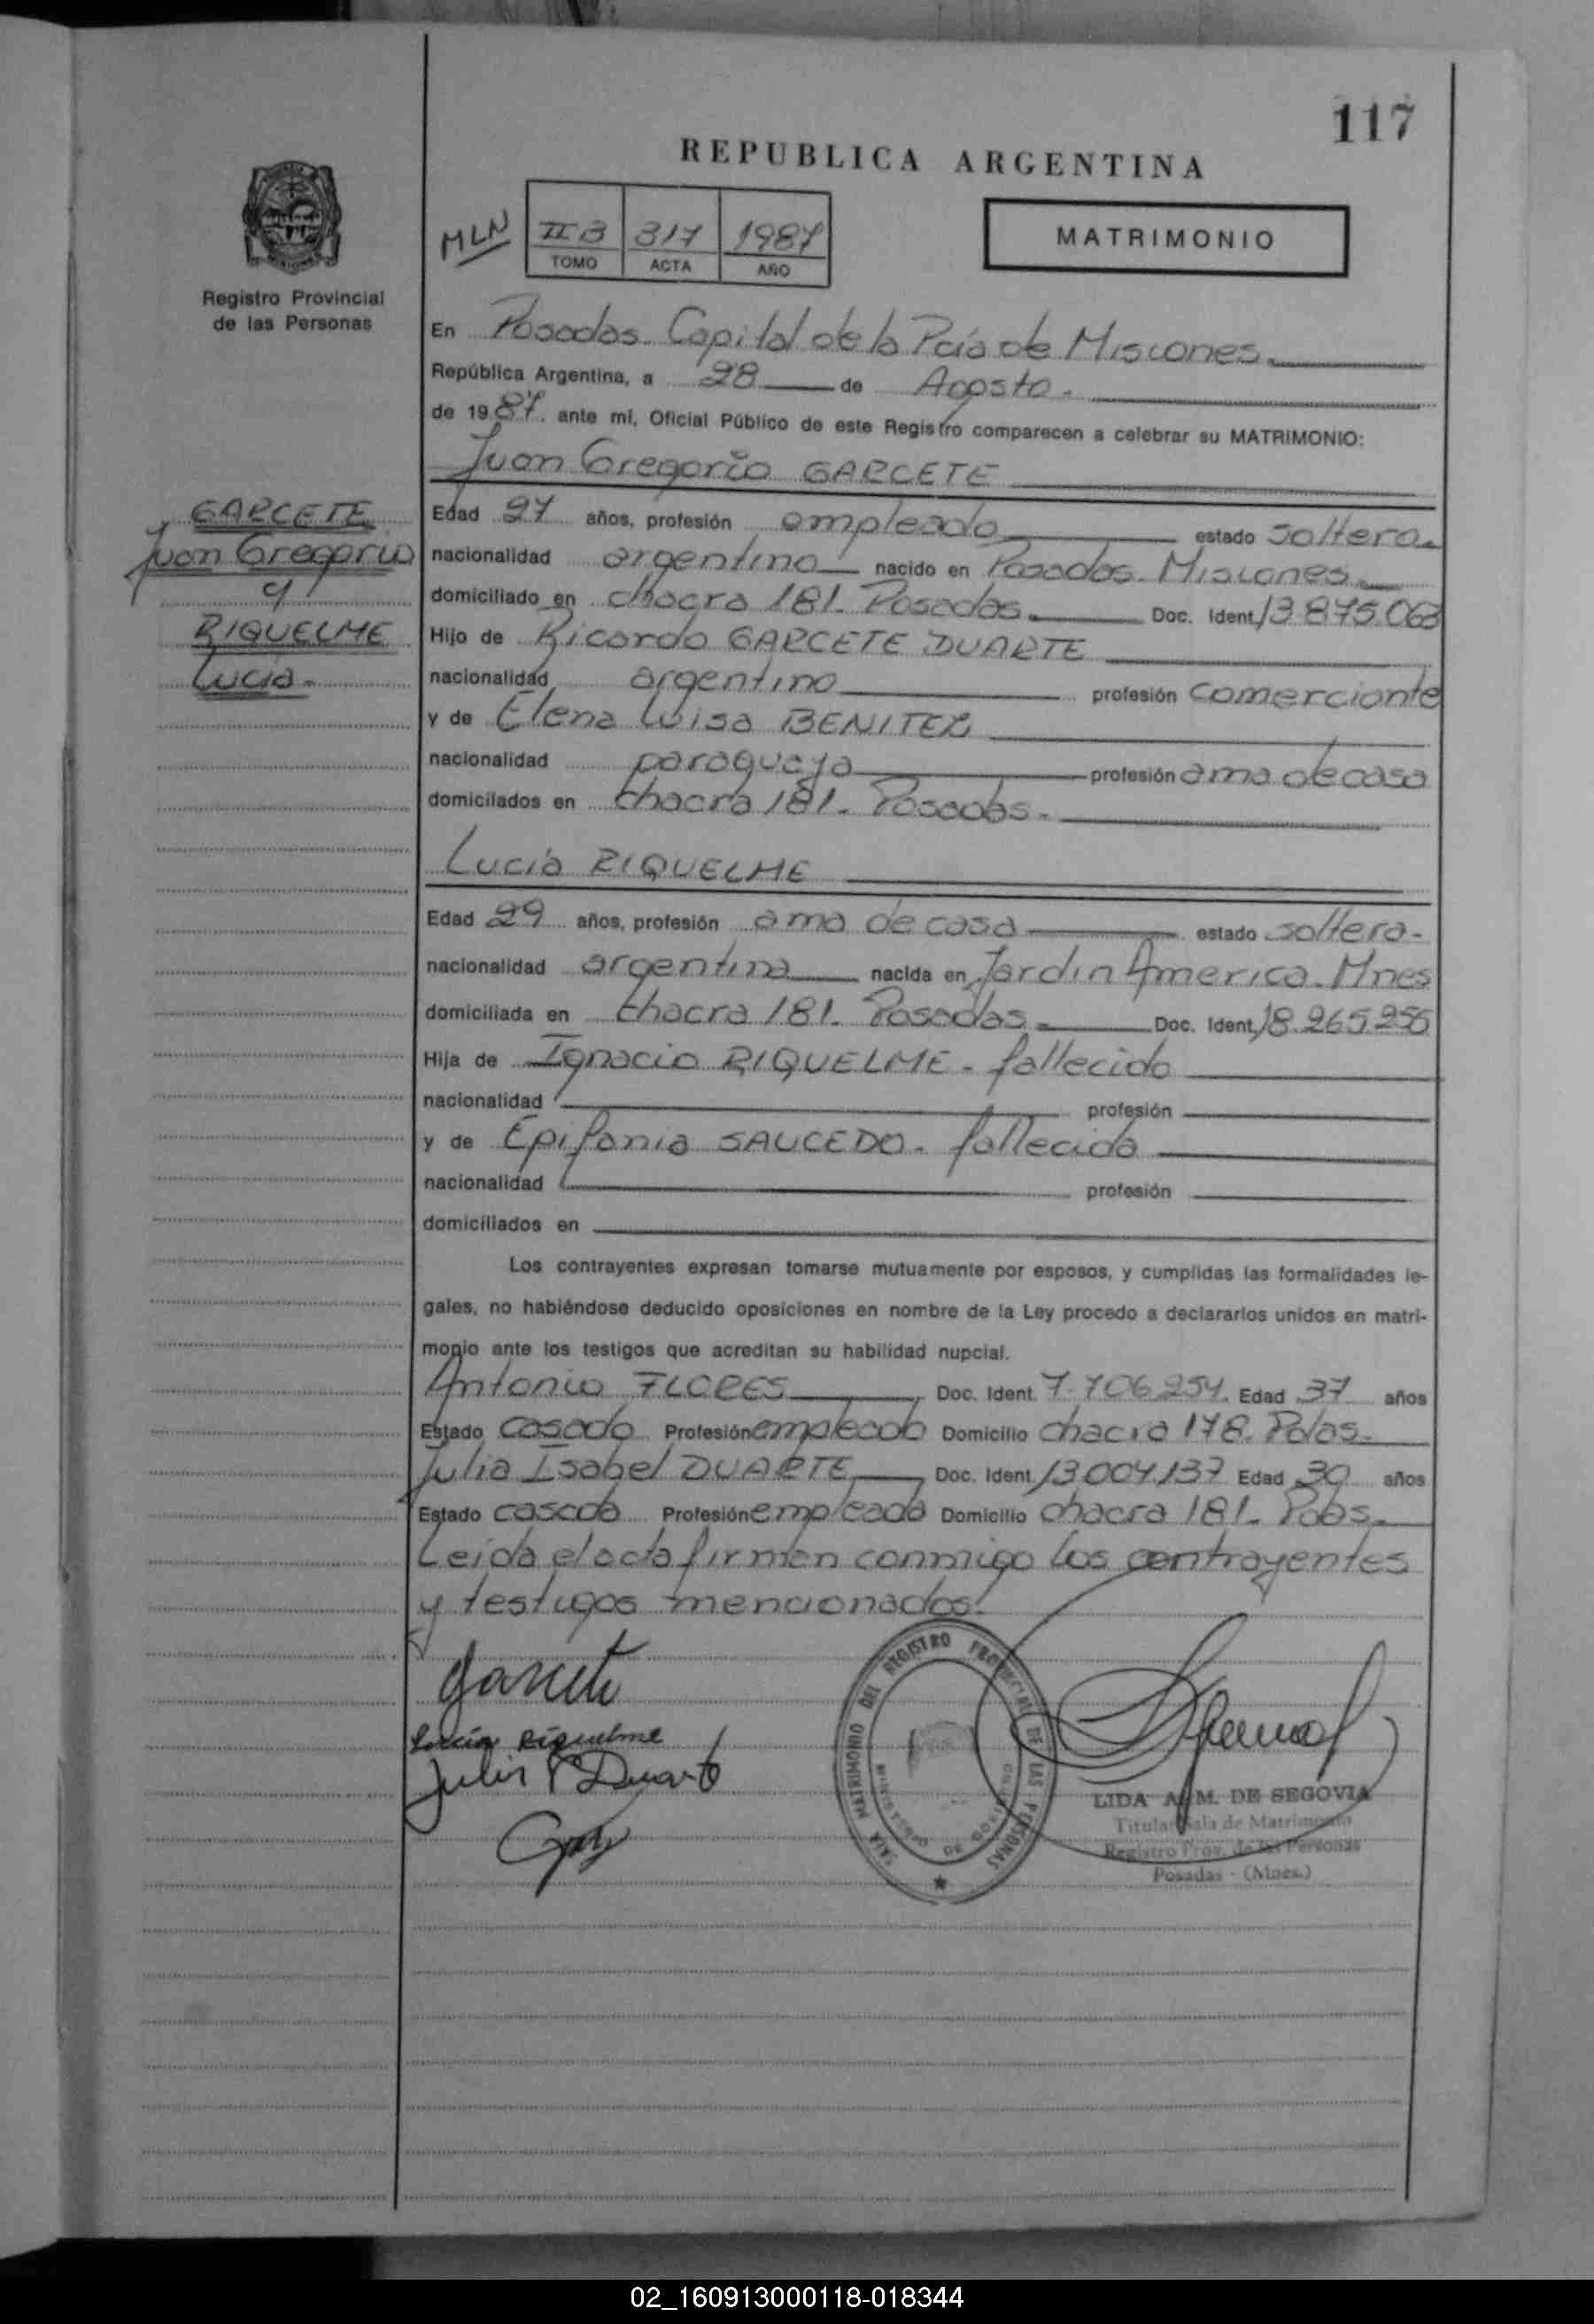 117
REPUBLICA ARGENTINA
MLN
II B 317 1987
TOMO ACTA AÑO
MATRIMONIO
Registro Provincial
de las Personas
En Posadas. Capital de la Pcia de Misiones.
República Argentina, a 28 de Agosto.
de 1987. ante mi, Oficial Público de este Registro comparecen a celebrar su MATRIMONIO:
Juan Gregorio GARCETE
GARCETE
Juan Gregorio
y
RIQUELME
Lucía.
Edad 27 años, profesión empleado estado soltero.
nacionalidad argentino nacido en Posadas. Misiones.
domiciliado en chacra 181. Posadas. Doc. Ident. 13.875.063
Hijo de Ricardo GARCETE DUARTE
nacionalidad argentino profesión comerciante
y de Elena Luisa BENITEZ
nacionalidad paraguaya profesión ama de casa
domicilados en chacra 181. Posadas.
Lucía RIQUELME
Edad 29 años, profesión ama de casa estado soltera.
nacionalidad argentina nacida en Jardin America. Mnes
domiciliada en chacra 181. Posadas. Doc. Ident. 18.265.255
Hija de Ignacio RIQUELME. fallecido
nacionalidad profesión
y de Epifania SAUCEDO. fallecida
nacionalidad profesión
domiciliados en
Los contrayentes expresan tomarse mutuamente por esposos, y cumplidas las formalidades le-
gales, no habiéndose deducido oposiciones en nombre de la Ley procedo a declararlos unidos en matri-
monio ante los testigos que acreditan su habilidad nupcial.
Antonio FLORES Doc. Ident. 7.706.254. Edad 37 años
Estado casado Profesión empleado Domicilio chacra 178. Pdas.
Julia Isabel DUARTE Doc. Ident. 13.004.137 Edad 30 años
Estado casada Profesión empleada Domicilio chacra 181. Pdas.
Leida el acta firman conmigo los contrayentes
y testigos mencionados.
Garcete
Lucia Riquelme
Julia I Duarte
SALA MATRIMONIO DEL REGISTRO PROVINCIAL DE LAS PERSONAS
MINISTERIO DE GOBIERNO
LIDA A. M. DE SEGOVIA
Titular Sala de Matrimonio
Registro Prov. de las Personas
Posadas - (Mnes.)
02_160913000118-018344